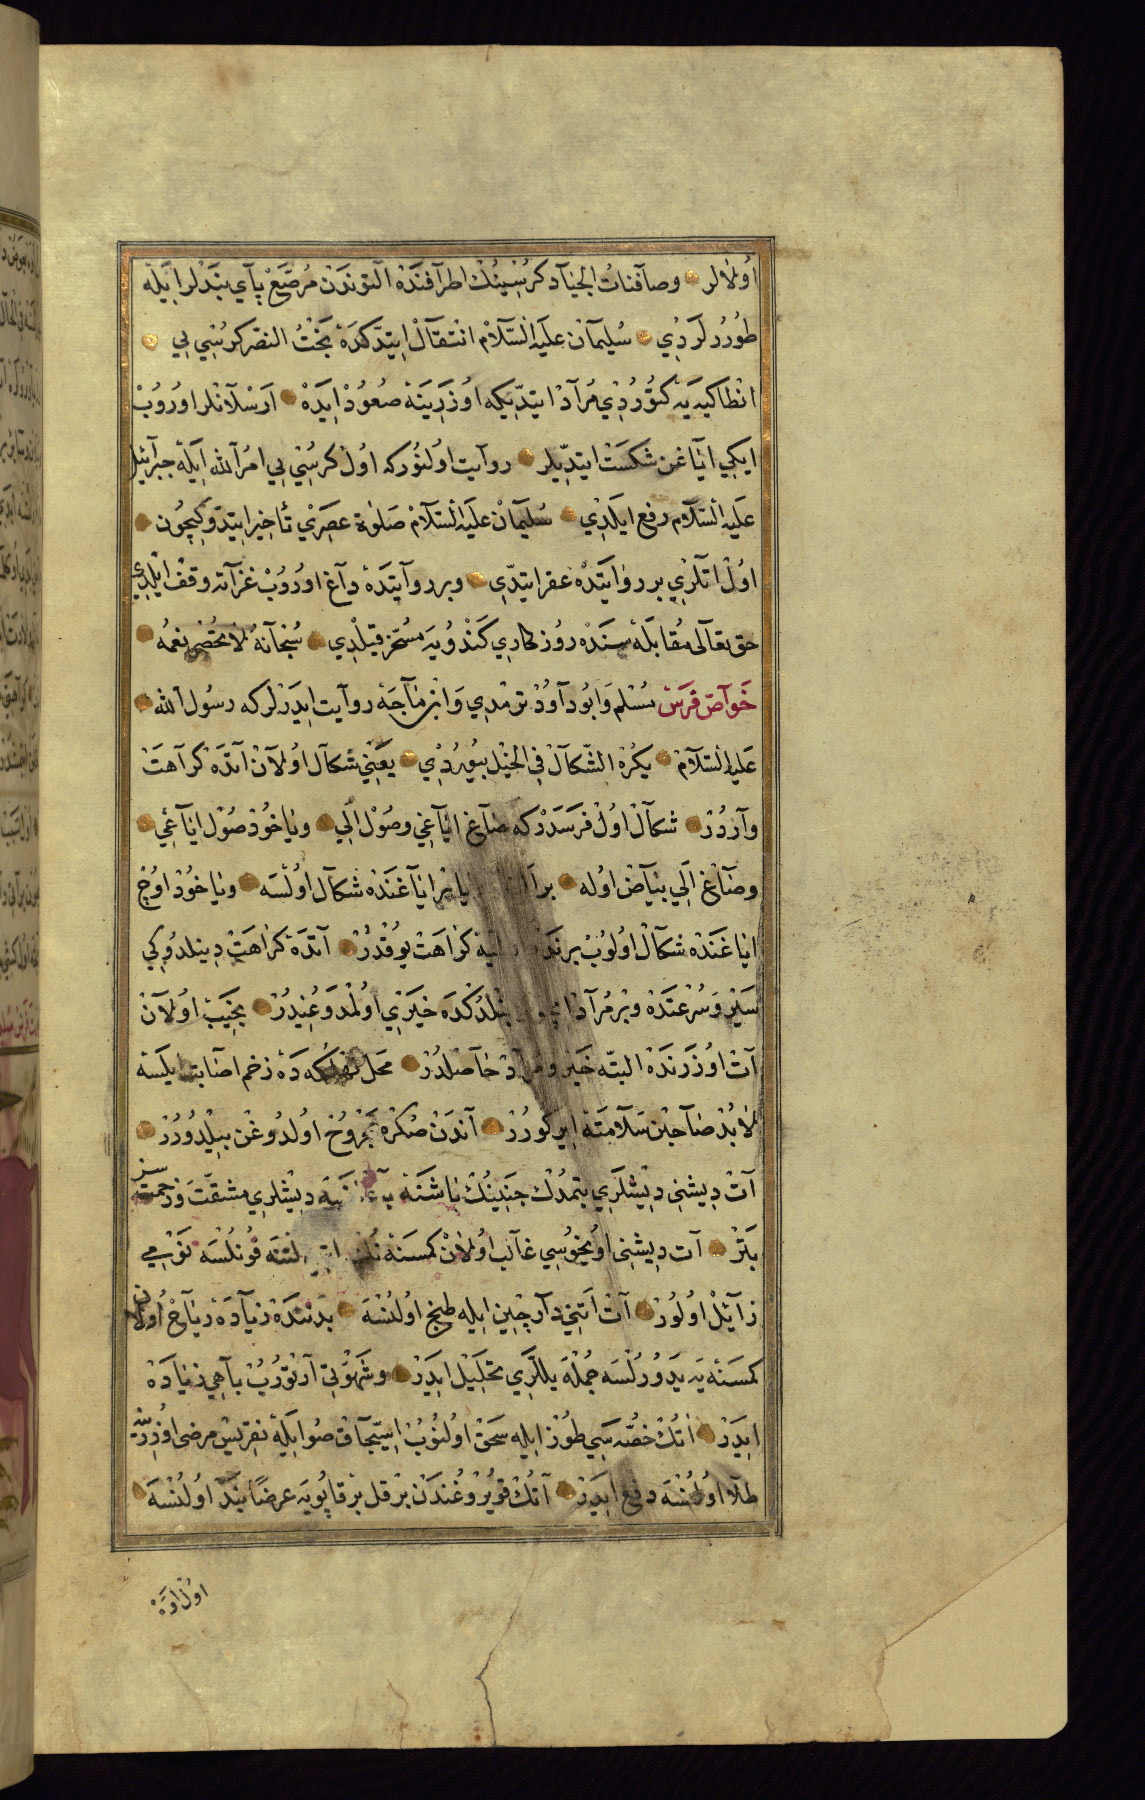 اولالر وصافنات الجیاد کرسینك اطرافنده التوندن مرصع پای بندلر ایله
طورورلردی سلیمان علیه السلام انتقال ایتدکده بخت النصر کرسی یی
انطاکیه یه کتوردی مراد ایتدیکه اوزرینه صعود ایده ارسلانلر اوروب
ایکی ایاغن شکست ایتدیلر روایت اولنور که اول کرسی یی امر الله ایله جبرائیل
علیه السلام رفع ایلدی سلیمان علیه السلام صلوة عصری تأخیر ایتدوکیچون
اول اتلری بر روایتده عقر ایتدی وبر روایتده داغ اوروب غزاته وقف ایلدی
حق تعالی مقابله سنده روزکاری کندویه مسخر قیلدی سبحانه لا تحصی نعمه
خواص فرس مسلم و ابو داود ترمذی و ابن ماجه روایت ایدرلر که رسول الله
علیه السلام یکره الشکال فی الخیل بیوردی یعنی شکال اولان آتده کراهت
واردر شکال اول فرسدر که صاغ ایاغی وصول الی ویاخود صول ایاغی
وصاغ الی بیاض اوله بر ایاغنده شکال اولسه ویاخود اوچ
ایاغنده شکال اولوب برنده کراهت یوقدر آتده کراهت دینلدوکی
سیر وسرعتده وبر مراد دکده خیری اولمدوغیدر نجیب اولان
آت اوزرنده البته خیر ومراد حاصلدر محل تهلکه ده زخم اصابت ایلسه
لابد صاحبن سلامته ایرکورر آندن صکره مجروح اولدوغن بیلدورر
آت دیشنی دیشلری بتمدك جنینك باشنه دیشلری مشقت وزحمتسز
بتر آت دیشنی اویخوسی غالب اولان کمسنه نك التنه قونلسه نومی
زائل اولور آت اتنی دارچین ایله طبخ اولنسه بدننده زیاده ریاح اولان
کمسنه یه یدورلسه جمله یللری تحلیل ایدر وشهوتی آرتوروب باهی زیاده
ایدر اتك خصیه سی طوز ایله سحق اولنوب ایسیجاق صو ایله نقریس مرضی اوزرینه
طلا اولنسه دفع ایدر آتك قویروغندن بر قل بر قاپویه عرضا بند اولنسه
اول اوه